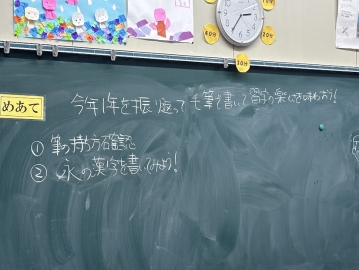 めあて
今年1年を振り返って毛筆を書いて習字の楽しさを味わおう!
① 筆の持ち方確認
② 永の漢字を書いてみよう!